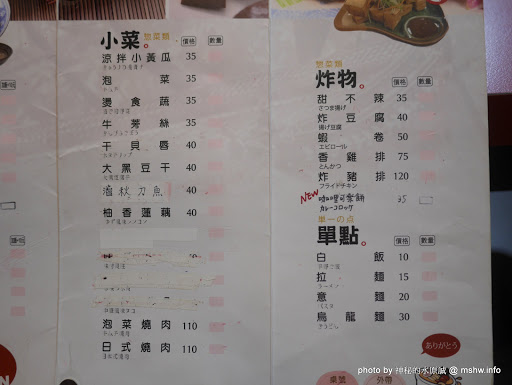 小菜。
惣菜類
價格
數量
涼拌小黃瓜 35
泡菜 35
燙食蔬 35
牛蒡絲 35
干貝唇 40
大黑豆干 40
滷秋刀魚 40
柚香蓮藕 40
泡菜燒肉 110
日式燒肉 110
惣菜類
炸物。
價格
數量
甜不辣 35
さつま揚げ
炸豆腐 40
揚げ豆腐
蝦卷 50
エビロール
香雞排 75
とんかつ
炸豬排 120
フライドチキン
NEW 咖哩可樂餅 35
カレーコロッケ
單一の点
單點。
價格
數量
白飯 10
拉麵 15
ラーメン
意麵 20
烏龍麵 30
うどん
ありがとう
桌號
外帶
photo by 神秘的水原誠 @ mshw.info